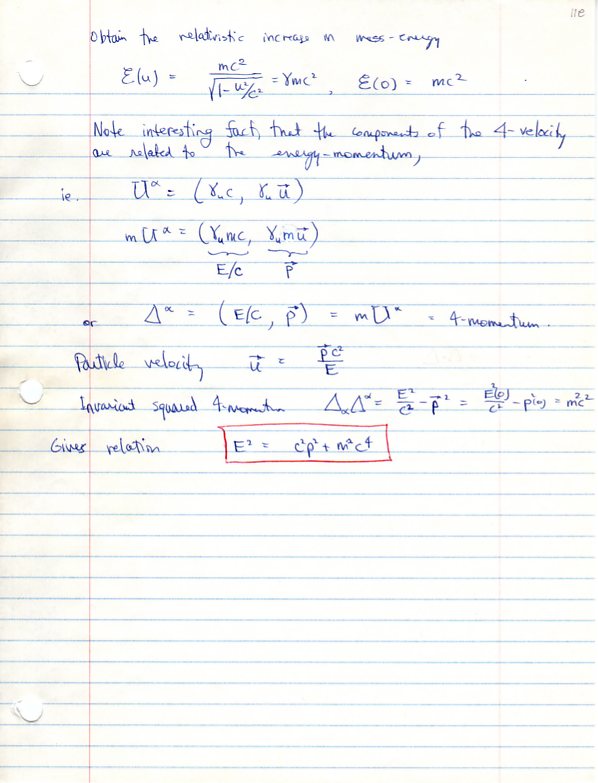 11e
Obtain the relativistic increase in mass-energy
ℰ(u) = mc² / √(1 - u²/c²) = γmc² , ℰ(0) = mc² .
Note interesting fact, that the components of the 4-velocity
are related to the energy-momentum,
ie. U^α = (γ_u c, γ_u u⃗)
m U^α = (γ_u mc, γ_u m u⃗)
E/c p⃗
or Δ^α = (E/c , p⃗) = m U^α = 4-momentum.
Particle velocity u⃗ = p⃗c² / E
Invariant squared 4-momentum Δ_α Δ^α = E²/c² - p⃗² = E²(0)/c² - p²(0) = m²c²
Gives relation E² = c²p² + m²c⁴